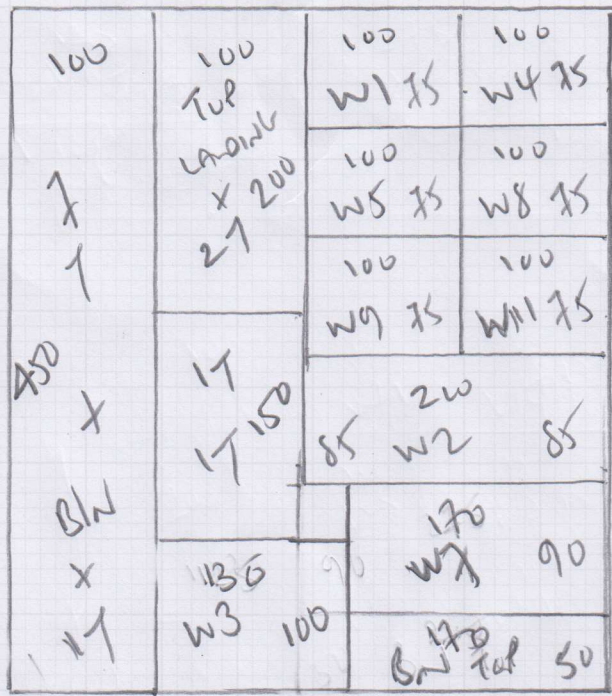 100
7
1
450
X
B/N
X
11T
100
TOP
LANDING
X 200
21
1T
1T 150
1130
W3 100
100
W1 75
100
W4 75
100
W5 75
100
W8 75
100
W9 75
100
W11 75
210
85 W2 85
170
W7 90
170
B/N TOP 50
90